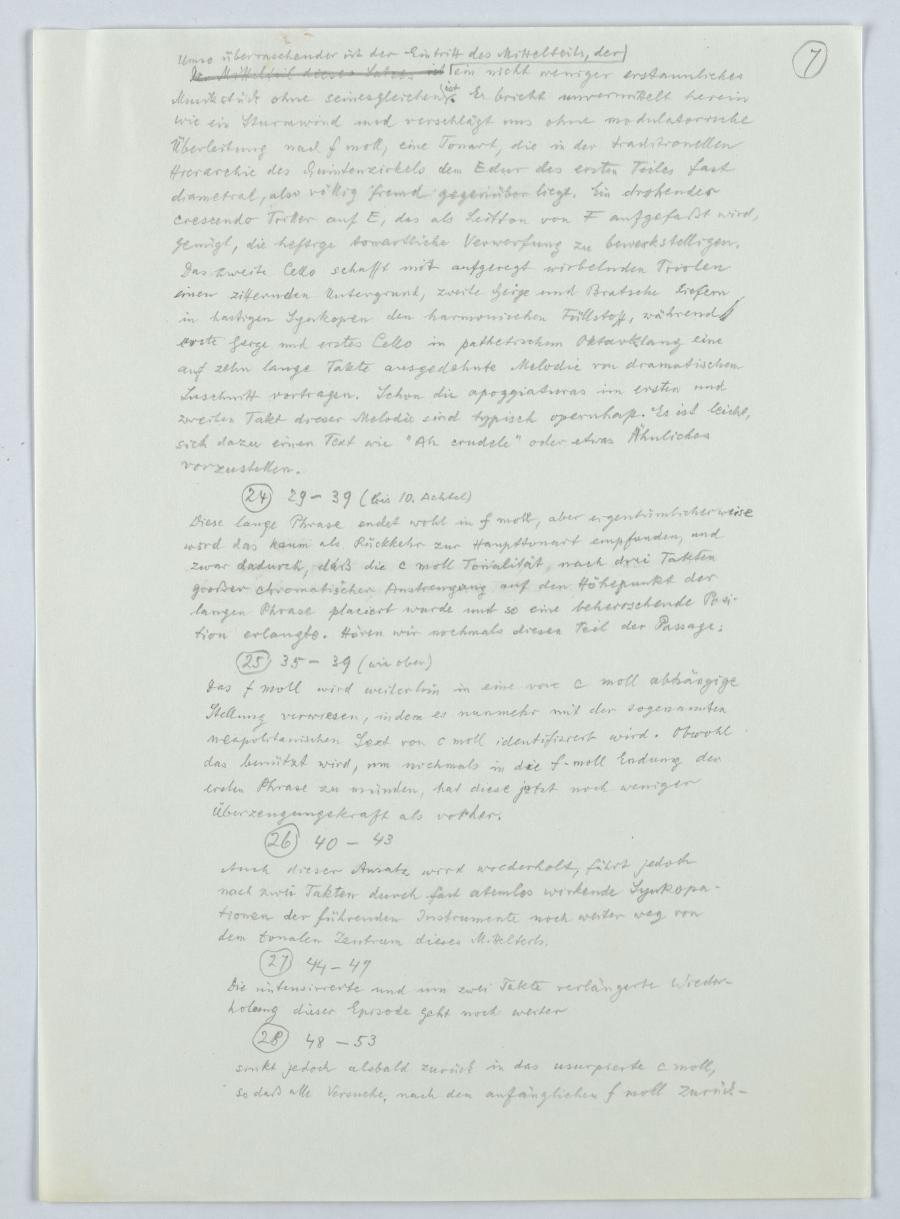 7
Umso überraschender ist der Eintritt des Mittelteils, der
Der Mittelteil dieses Satzes ist ein nicht weniger erstaunliches
Musikstück ohne seinesgleichen ist. Er bricht unvermittelt herein
wie ein Sturmwind und verschlägt uns ohne modulatorische
Überleitung nach f moll, eine Tonart, die in der traditionellen
Hierarchie des Quintenzirkels dem Edur des ersten Teiles fast
diametral, also völlig fremd gegenüber liegt. Ein drohender
crescendo Triller auf E, das als Leitton von F aufgefaßt wird,
genügt, die heftige tonartliche Verwerfung zu bewerkstelligen.
Das zweite Cello schafft mit aufgeregt wirbelnden Triolen
einen zitternden Untergrund, zweite Geige und Bratsche liefern
in hastigen Synkopen den harmonischen Füllstoff, während
erste Geige und erstes Cello in pathetischem Oktavklang eine
auf zehn lange Takte ausgedehnte Melodie von dramatischem
Zuschnitt vortragen. Schon die apoggiaturas im ersten und
zweiten Takt dieser Melodie sind typisch opernhaft. Es ist leicht,
sich dazu einen Text wie "Ah crudele" oder etwas Ähnliches
vorzustellen.
24 29 – 39 (bis 10. Achtel)
Diese lange Phrase endet wohl in f moll, aber eigentümlicherweise
wird das kaum als Rückkehr zur Haupttonart empfunden, und
zwar dadurch, daß die c moll Tonalität, nach drei Takten
großer chromatischer Anstrengung auf den Höhepunkt der
langen Phrase placiert wurde und so eine beherrschende Posi-
tion erlangte. Hören wir nochmals diesen Teil der Passage:
25 35 – 39 (wie oben)
Das f moll wird weiterhin in eine von c moll abhängige
Stellung verwiesen, indem es nunmehr mit der sogenannten
neapolitanischen Sext von c moll identifiziert wird. Obwohl
das benützt wird, um nochmals in die f-moll Endung der
ersten Phrase zu münden, hat diese jetzt noch weniger
Überzeugungskraft als vorher.
26 40 – 43
Auch dieser Ansatz wird wiederholt, führt jedoch
nach zwei Takten durch fast atemlos wirkende Synkopa-
tionen der führenden Instrumente noch weiter weg von
dem tonalen Zentrum dieses Mittelteils.
27 44 – 47
Die intensivierte und um zwei Takte verlängerte Wieder-
holung dieser Episode geht noch weiter
28 48 – 53
sinkt jedoch alsbald zurück in das usurpierte c moll,
so daß alle Versuche, nach dem anfänglichen f moll zurück-